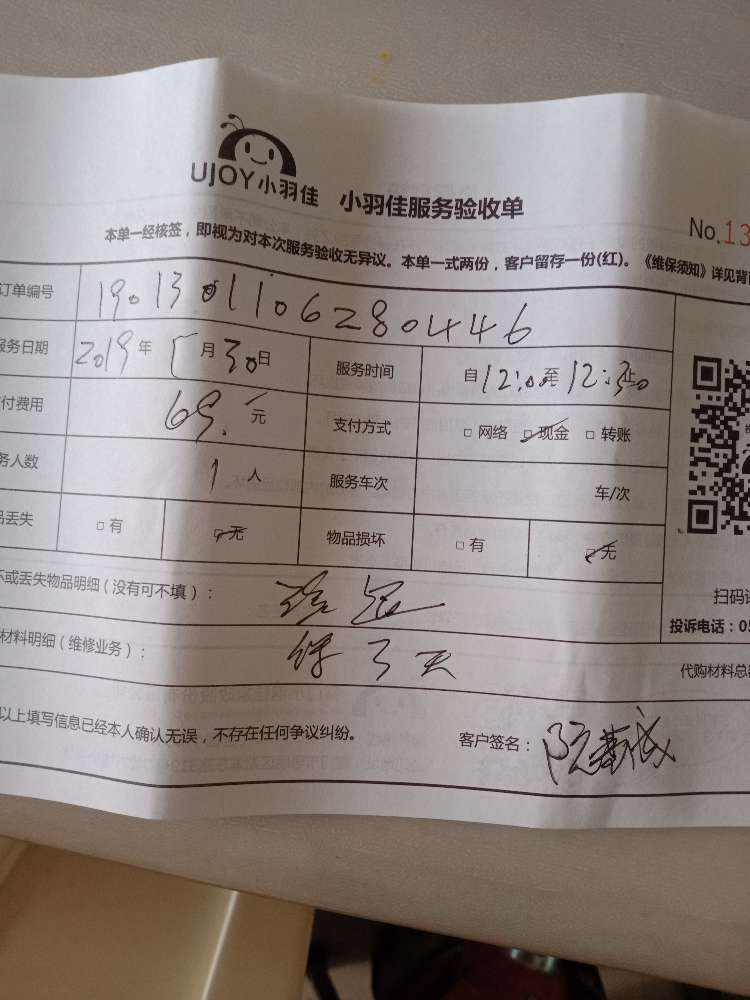 UJOY小羽佳 小羽佳服务验收单
No.13
本单一经核签，即视为对本次服务验收无异议。本单一式两份，客户留存一份(红)。《维保须知》详见背
订单编号 1901301106280446
服务日期 2019年5月30日 服务时间 自12:00至12:30止
付费用 69.元 支付方式 □网络 ☑现金 □转账
务人数 1人 服务车次 车/次
品丢失 □有 ☑无 物品损坏 □有 ☑无
坏或丢失物品明细（没有可不填）：
扫码
投诉电话：05
材料明细（维修业务）： 保了天
代购材料总
以上填写信息已经本人确认无误，不存在任何争议纠纷。
客户签名：